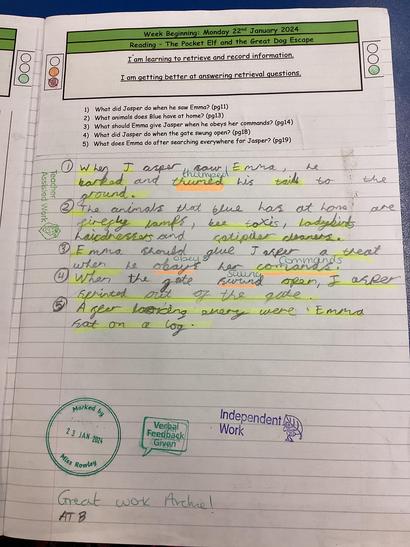 Week Beginning: Monday 22nd January 2024
Reading - The Pocket Elf and the Great Dog Escape
I am learning to retrieve and record information.
I am getting better at answering retrieval questions.
1) What did Jasper do when he saw Emma? (pg11)
2) What animals does Blue have at home? (pg13)
3) What should Emma give Jasper when he obeys her commands? (pg14)
4) What did Jasper do when the gate swung open? (pg18)
5) What does Emma do after searching everywhere for Jasper? (pg19)
Teacher Assisted Work
1 When Jasper saw Emma, he
thumped
barked and thumed his tails to the
ground.
2 The animals that blue has at home are
firefly lamps, bee taxis, ladybirds
hairdressers and catipiler cleaners.
3 Emma should give Jasper a treat
obeys commands
when he obays her comands.
swung
4 When the gate swund open, Jasper
sprinted out of the gate.
5 After looking every were Emma
sat on a log.
Marked by
23 JAN 2024
Miss Rowley
Verbal
Feedback
Given
Independent
Work
Great work Archie!
AT 3